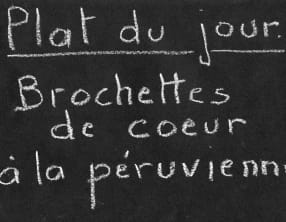 Plat du jour.
Brochettes
de coeur
à la péruvienn